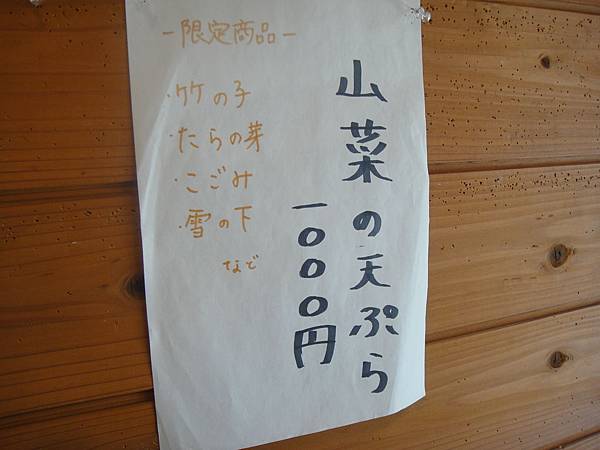 山菜の天ぷら
一〇〇〇円
－限定商品－
・竹の子
・たらの芽
・こごみ
・雪の下
など